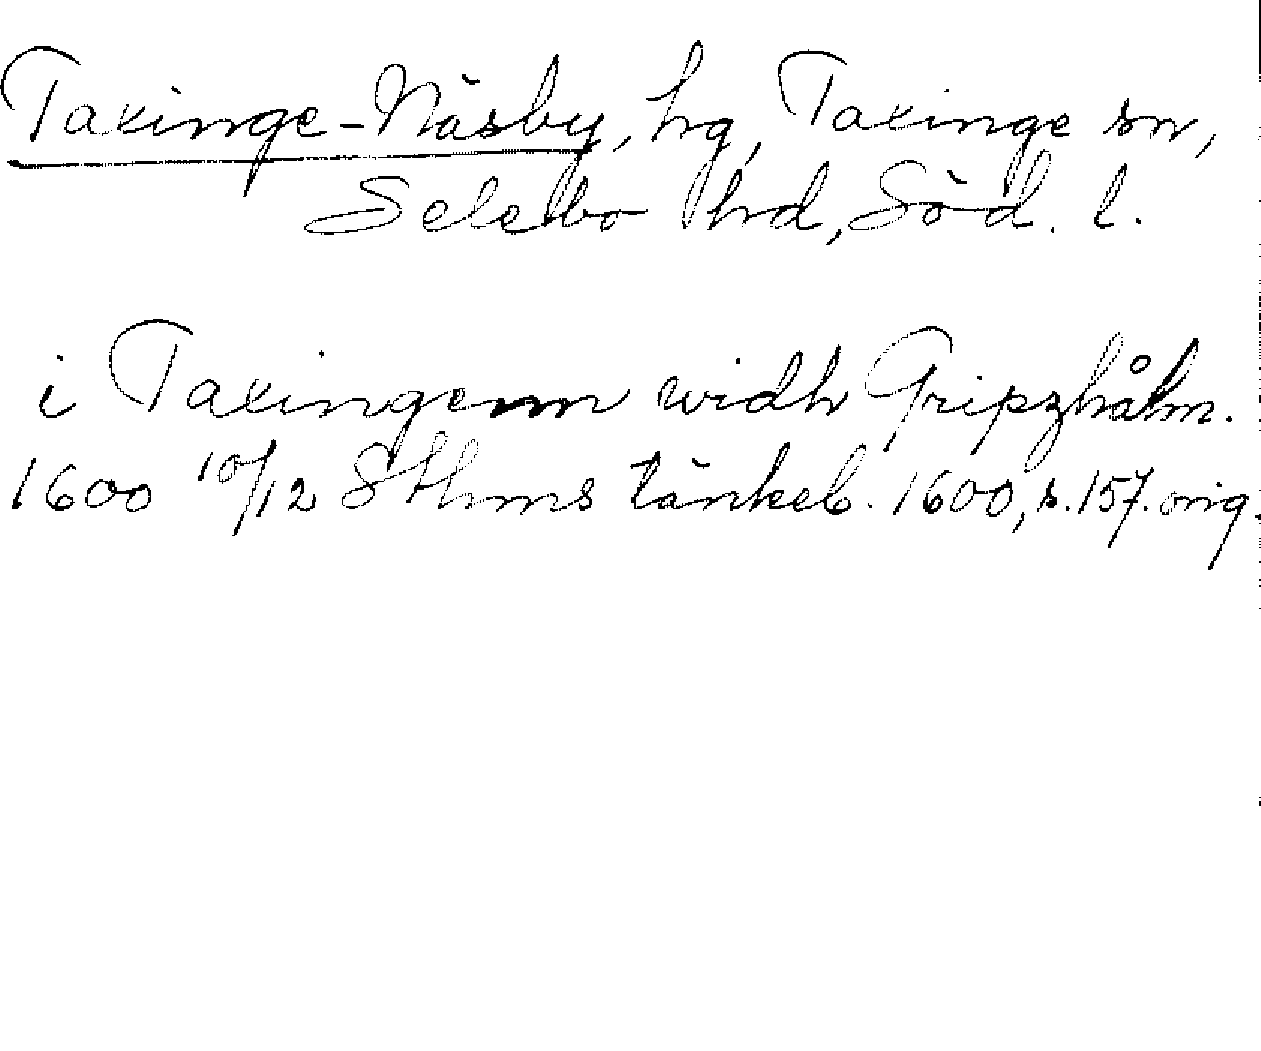 Taxinge-Näsby, hg, Taxinge sn,
Selebo hd, Söd. l.
i Taxingenn widh Gripzhålm.
1600 10/12 Sthms tänkeb. 1600, s. 157. orig.